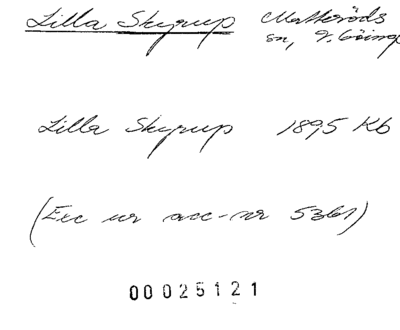 Lilla Skyrup Matteröds
sn, V. Göinge
Lilla Skyrup 1895 Kb
(Exc ur acc-nr 5361)
00025121